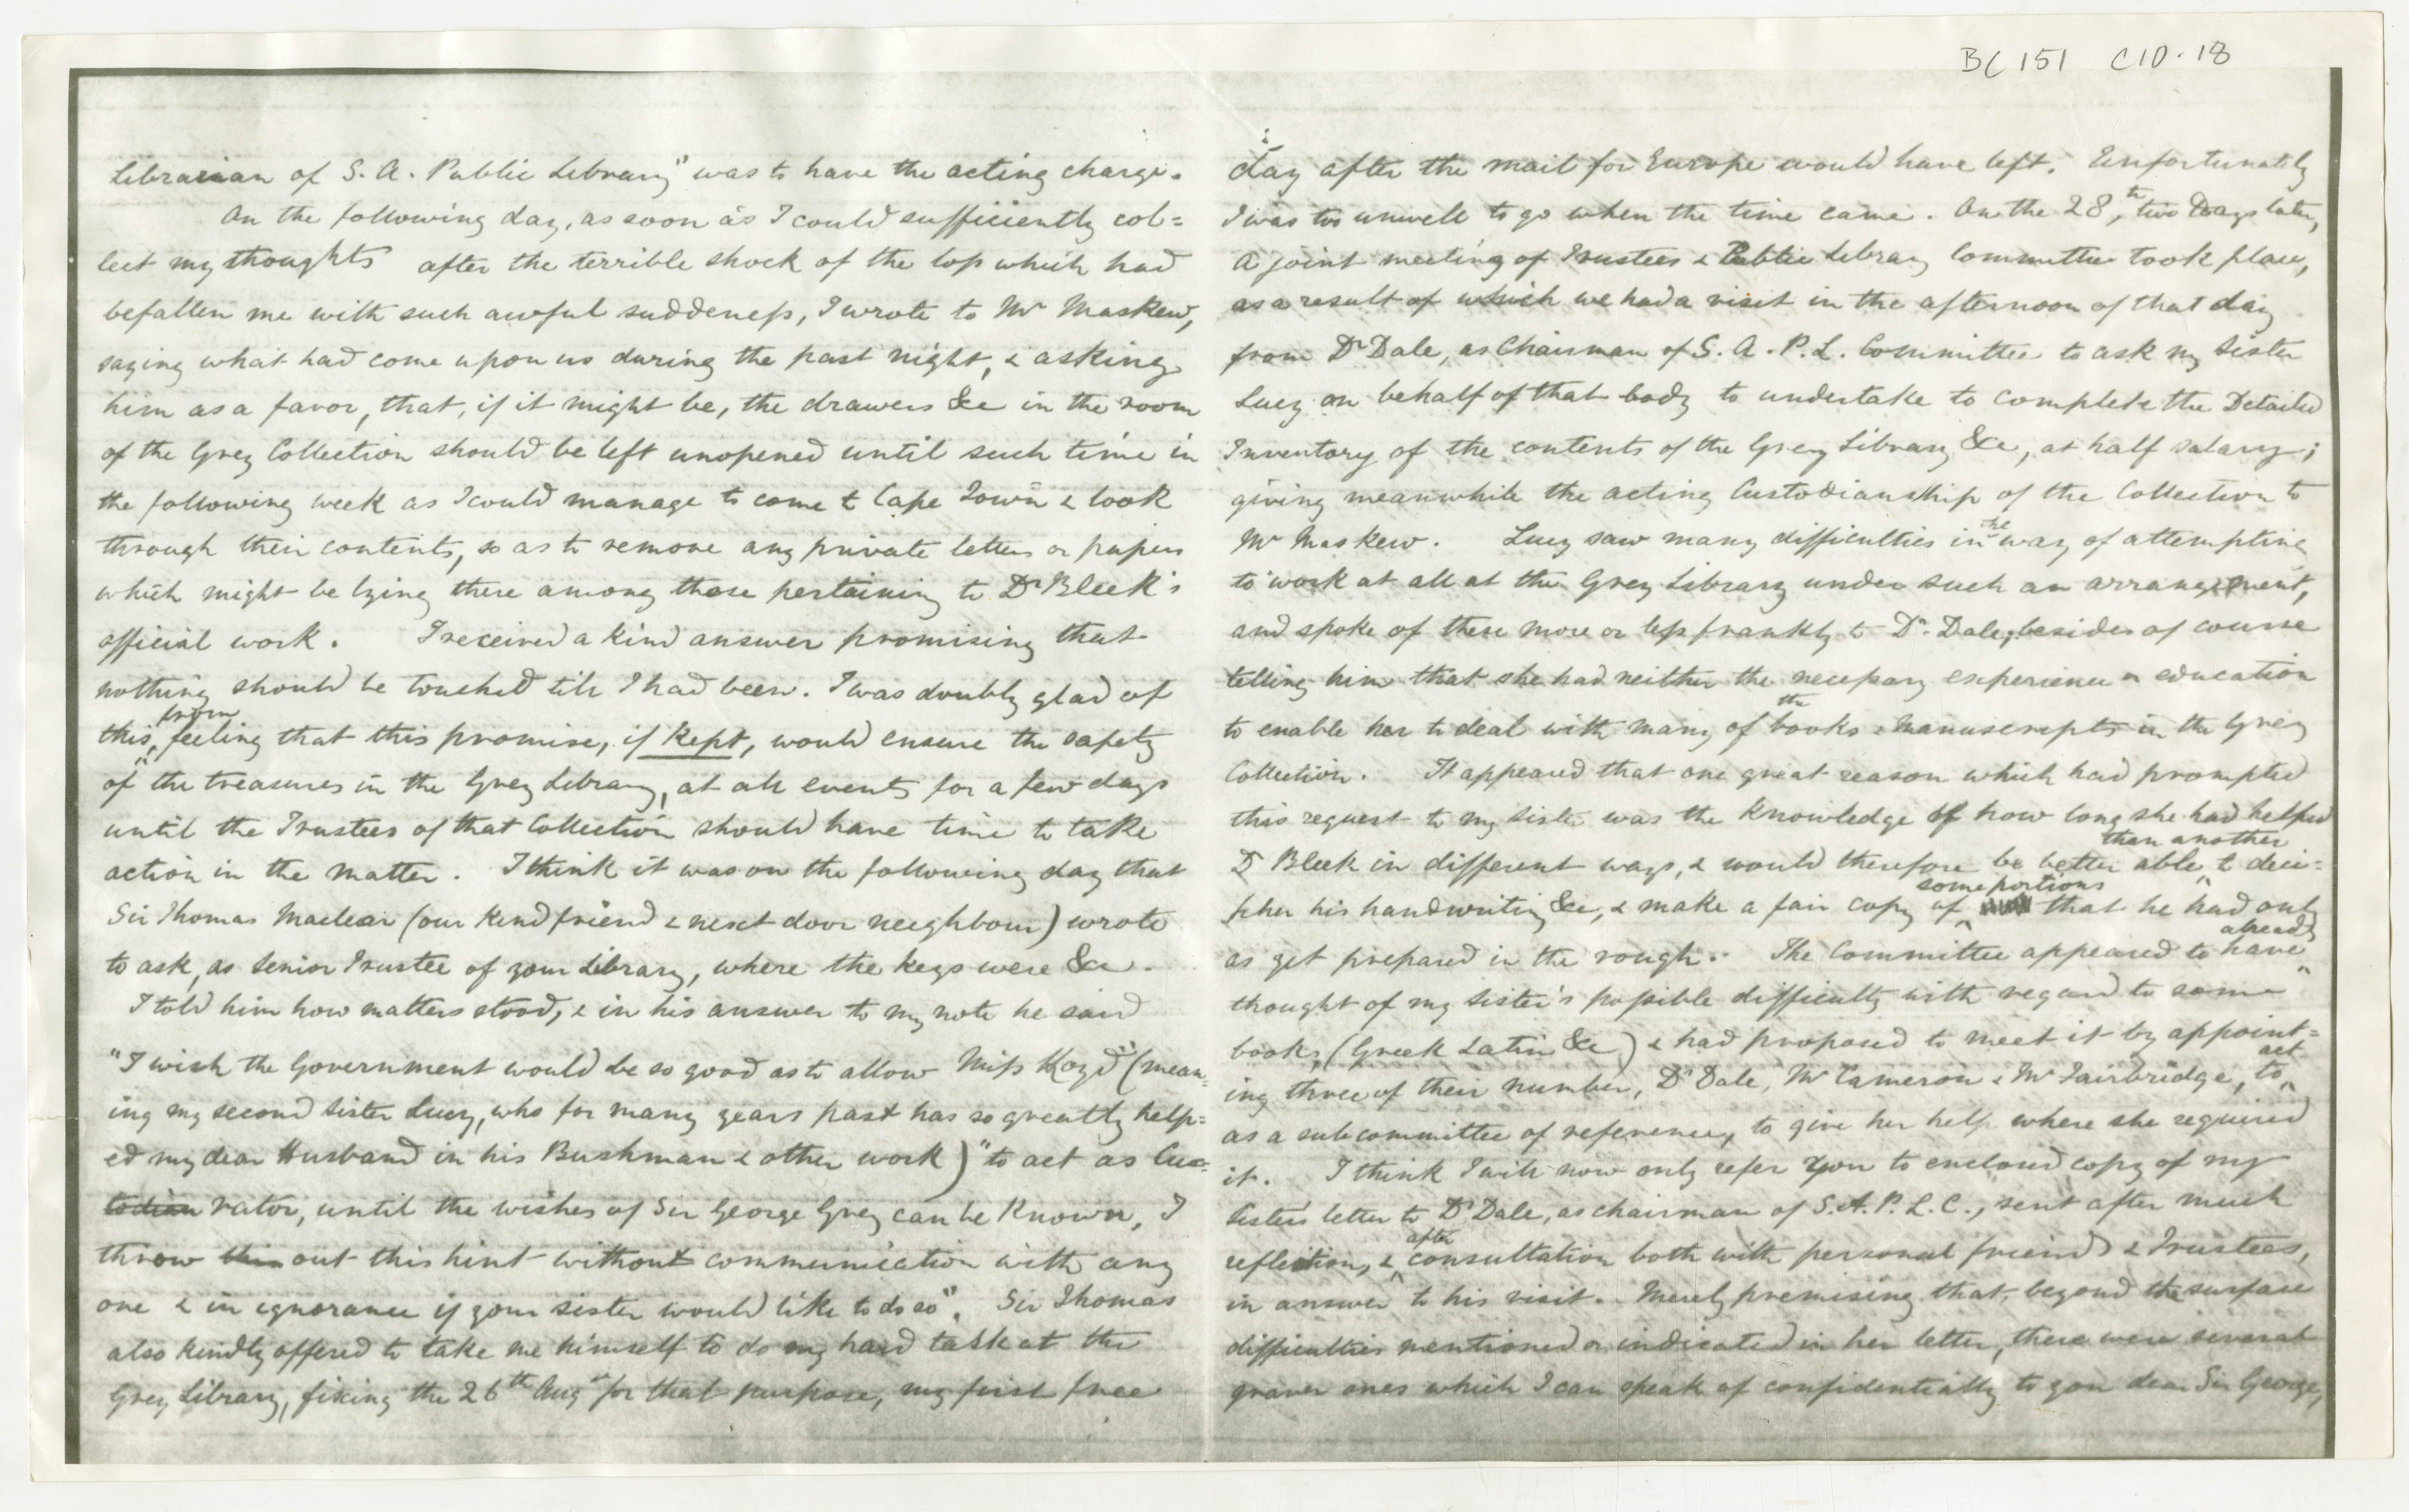 BC 151 C10.18
Librarian of S. A. Public Library" was to have the acting charge.
On the following day, as soon as I could sufficiently col=
lect my thoughts after the terrible shock of the loss which had
befallen me with such awful suddeness, I wrote to Mr Maskew,
saying what had come upon us during the past night, & asking
him as a favor, that, if it might be, the drawers &c in the room
of the Grey Collection should be left unopened until such time in
the following week as I could manage to come to Cape Town & look
through their contents, so as to remove any private letters or papers
which might be lying there among those pertaining to Dr Bleek's
official work. I received a kind answer promising that
nothing should be touched till I had been. I was doubly glad of
this, from feeling that this promise, if kept, would ensure the safety
of the treasures in the Grey Library, at all events for a few days
until the Trustees of that Collection should have time to take
action in the matter. I think it was on the following day that
Sir Thomas Maclear (our kind friend & next door neighbour) wrote
to ask, as Senior Trustee of your Library, where the keys were &c.
I told him how matters stood, & in his answer to my note he said
"I wish the Government would be so good as to allow Miss Lloyd" (mean=
ing my second sister Lucy, who for many years past has so greatly help=
ed my dear Husband in his Bushman & other work) "to act as Cu=
todian rator, until the wishes of Sir George Grey can be known, I
throw this out this hint without communication with any
one & in ignorance if your sister would like to do so". Sir Thomas
also kindly offered to take me himself to do my hard task at the
Grey Library, fixing the 26th Augst for that purpose, my first free
day after the mail for Europe would have left. Unfortunately
I was too unwell to go when the time came. On the 28th, two days later,
a joint meeting of Trustees & Public Library Committee took place,
as a result of which we had a visit in the afternoon of that day
from Dr Dale, as Chairman of S. A. P. L. Committee to ask my Sister
Lucy on behalf of that body to undertake to complete the Detailed
Inventory of the contents of the Grey Library &c, at half salary;
giving meanwhile the acting Custodianship of the Collection to
Mr Maskew. Lucy saw many difficulties in the way of attempting
to work at all at the Grey Library under such an arrangement,
and spoke of these more or less frankly to Dr. Dale, besides of course
telling him that she had neither the necessary experience or education
to enable her to deal with many of the books & manuscripts in the Grey
Collection. It appeared that one great reason which had prompted
this request to my sister was the knowledge of how long she had helped
Dr Bleek in different ways, & would therefore be better able than another to deci=
pher his handwriting &c, & make a fair copy of some portions that he had only
as yet prepared in the rough. The Committee appeared to have already
thought of my sister's possible difficulty with regard to some
books, (Greek Latin &c) & had proposed to meet it by appoint=
ing three of their number, Dr Dale, Mr Cameron & Mr Fairbridge, to act
as a subcommittee of reference, to give her help where she required
it. I think I will now only refer you to enclosed copy of my
Sister's letter to Dr Dale, as chairman of S. A. P. L. C., sent after much
reflection, & after consultation both with personal friends & Trustees,
in answer to his visit. Merely premising that, beyond the surface
difficulties mentioned or indicated in her letter, there were several
graver ones which I can speak of confidentially to you dear Sir George,